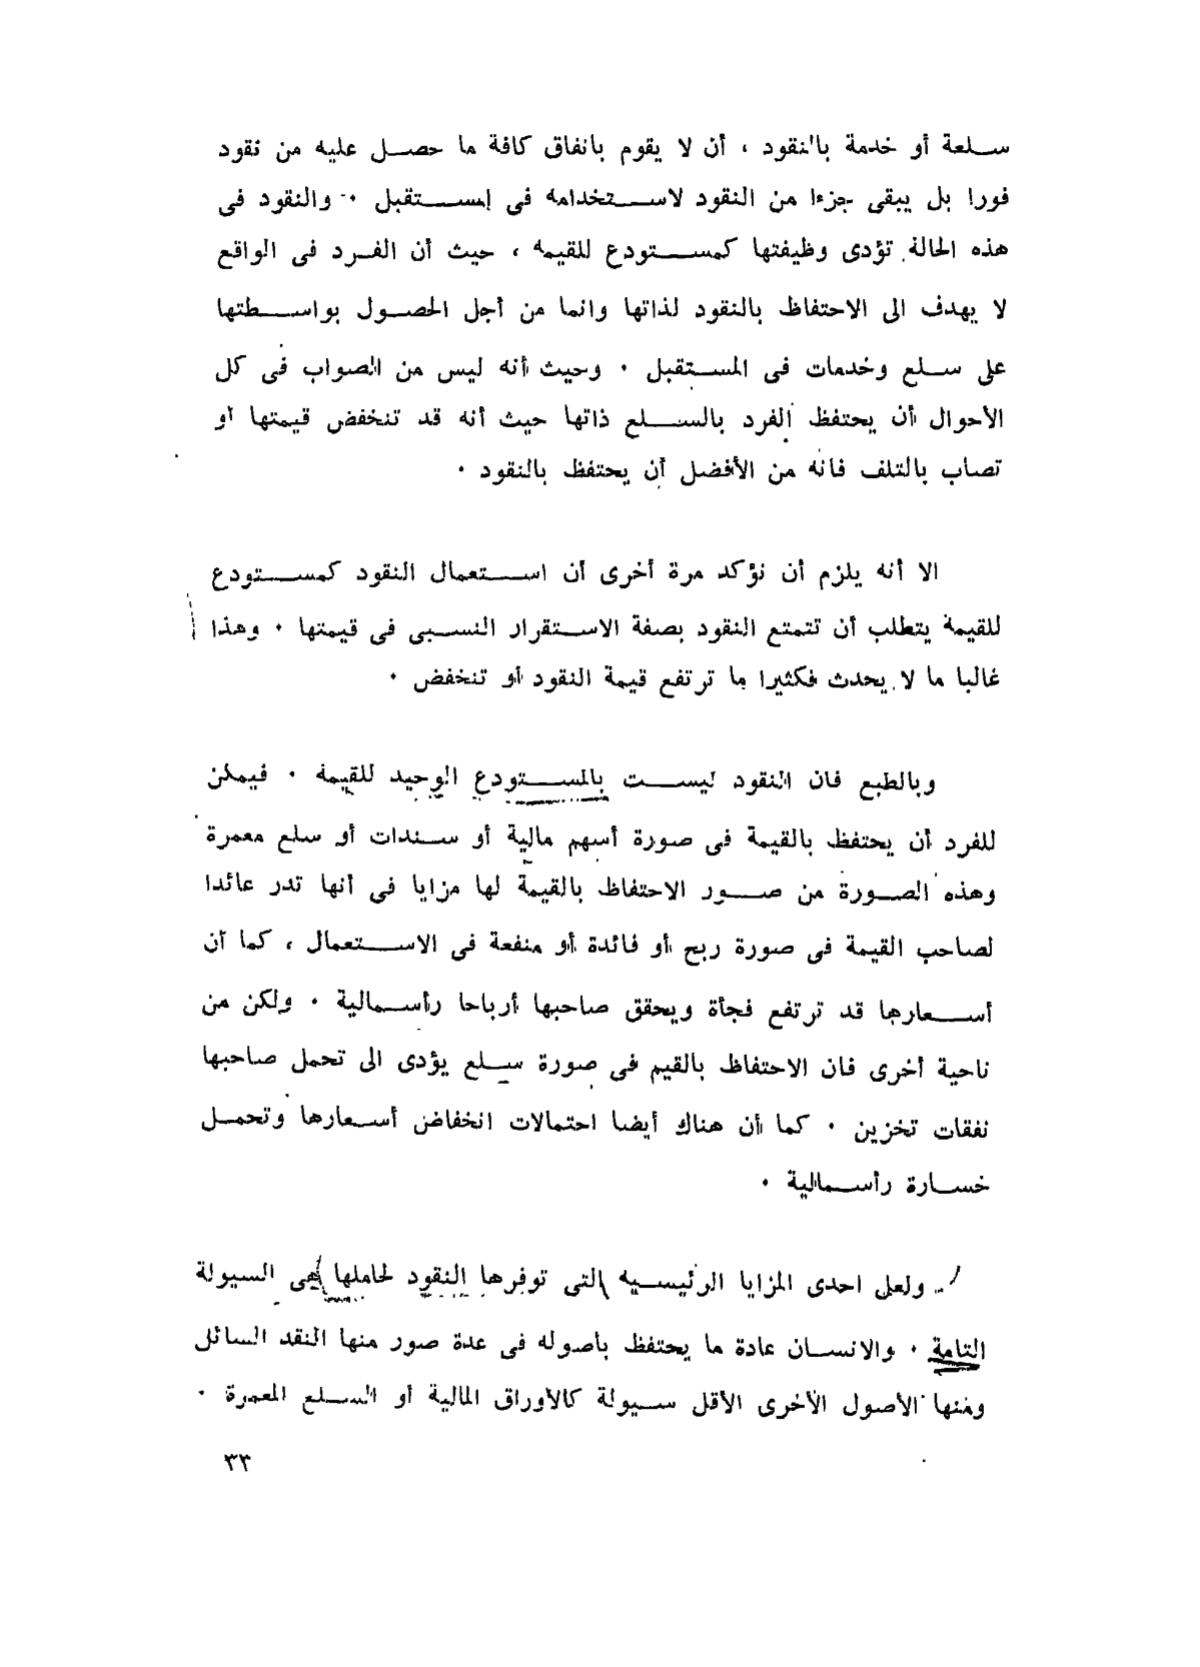 سلعة أو خدمة بالنقود ، أن لا يقوم بانفاق كافة ما حصل عليه من نقود
فورا بل يبقى جزءا من النقود لاستخدامه فى المستقبل ٠ والنقود فى
هذه الحالة تؤدى وظيفتها كمستودع للقيمه ، حيث أن الفرد فى الواقع
لا يهدف الى الاحتفاظ بالنقود لذاتها وانما من أجل الحصول بواسطتها
على سلع وخدمات فى المستقبل ٠ وحيث أنه ليس من الصواب فى كل
الأحوال أن يحتفظ الفرد بالسلع ذاتها حيث أنه قد تنخفض قيمتها أو
تصاب بالتلف فانه من الأفضل أن يحتفظ بالنقود ٠
الا أنه يلزم أن نؤكد مرة أخرى أن استعمال النقود كمستودع
للقيمة يتطلب أن تتمتع النقود بصفة الاستقرار النسبى فى قيمتها ٠ وهذا
غالبا ما لا يحدث فكثيرا ما ترتفع قيمة النقود أو تنخفض ٠
وبالطبع فان النقود ليست بالمستودع الوحيد للقيمة ٠ فيمكن
للفرد أن يحتفظ بالقيمة فى صورة أسهم مالية أو سندات أو سلع معمرة
وهذه الصورة من صور الاحتفاظ بالقيمة لها مزايا فى أنها تدر عائدا
لصاحب القيمة فى صورة ربح أو فائدة أو منفعة فى الاستعمال ، كما أن
أسعارها قد ترتفع فجأة ويحقق صاحبها أرباحا رأسمالية ٠ ولكن من
ناحية أخرى فان الاحتفاظ بالقيم فى صورة سلع يؤدى الى تحمل صاحبها
نفقات تخزين ٠ كما أن هناك أيضا احتمالات انخفاض أسعارها وتحمل
خسارة رأسمالية ٠
ولعل احدى المزايا الرئيسيه التى توفرها النقود لحاملها هى السيولة
التامة ٠ والانسان عادة ما يحتفظ بأصوله فى عدة صور منها النقد السائل
ومنها الأصول الأخرى الأقل سيولة كالأوراق المالية أو السلع المعمرة ٠
٣٣